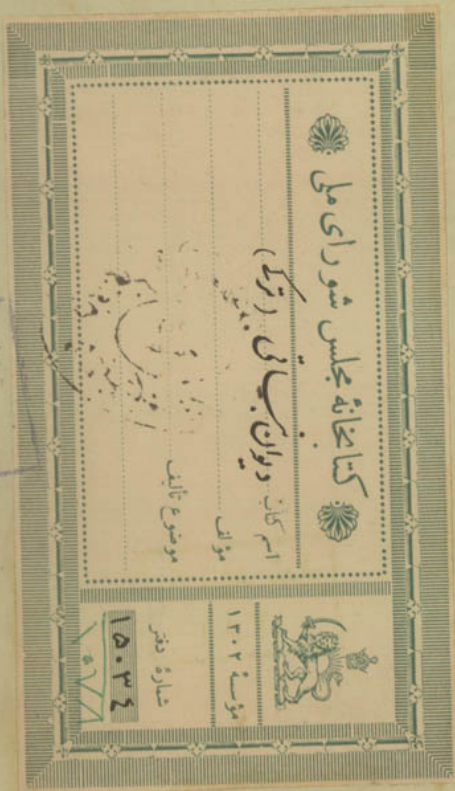 کتابخانهٔ مجلس شورای ملی
اسم کتاب دیوان (ترکی)
مؤلف
موضوع تألیف
مؤسسهٔ ۱۳۰۲
شمارهٔ دفتر
۱۵۰۳۴